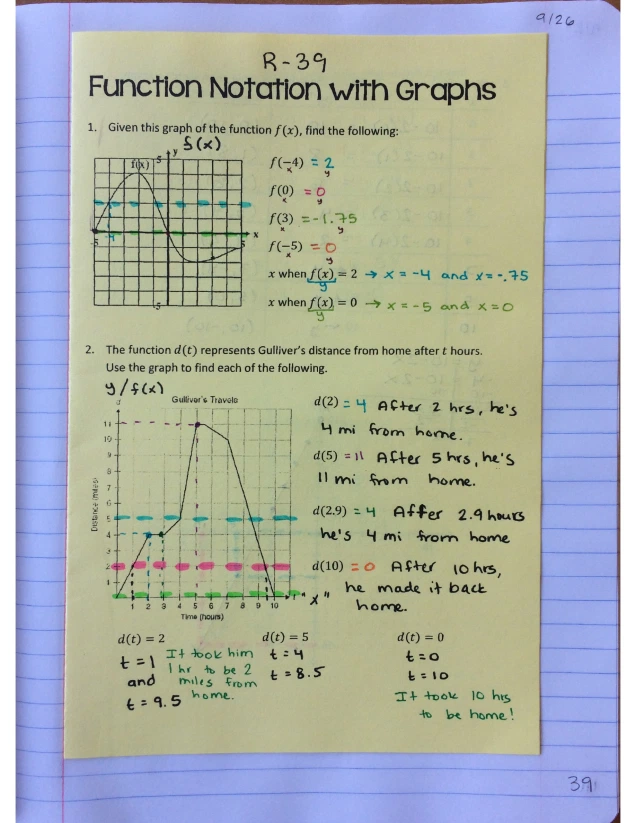 9/26
R-39
Function Notation with Graphs
1. Given this graph of the function f(x), find the following:
f(x)
y
f(x)
5
x
-5
-4
5
-5
f(-4) = 2
x y
f(0) = 0
x y
f(3) = -1.75
x y
f(-5) = 0
x y
x when f(x) = 2 → x = -4 and x = -.75
y
x when f(x) = 0 → x = -5 and x = 0
y
2. The function d(t) represents Gulliver's distance from home after t hours.
Use the graph to find each of the following.
y/f(x)
d
Gulliver's Travels
Distance (miles)
11
10
9
8
7
6
5
4
3
2
1
1 2 3 4 5 6 7 8 9 10
t
"x"
Time (hours)
d(2) = 4 After 2 hrs, he's
4 mi from home.
d(5) = 11 After 5 hrs, he's
11 mi from home.
d(2.9) = 4 After 2.9 hours
he's 4 mi from home
d(10) = 0 After 10 hrs,
he made it back
home.
d(t) = 2
t = 1
and
t = 9.5
It took him
1 hr to be 2
miles from
home.
d(t) = 5
t = 4
t = 8.5
d(t) = 0
t = 0
t = 10
It took 10 hrs
to be home!
39